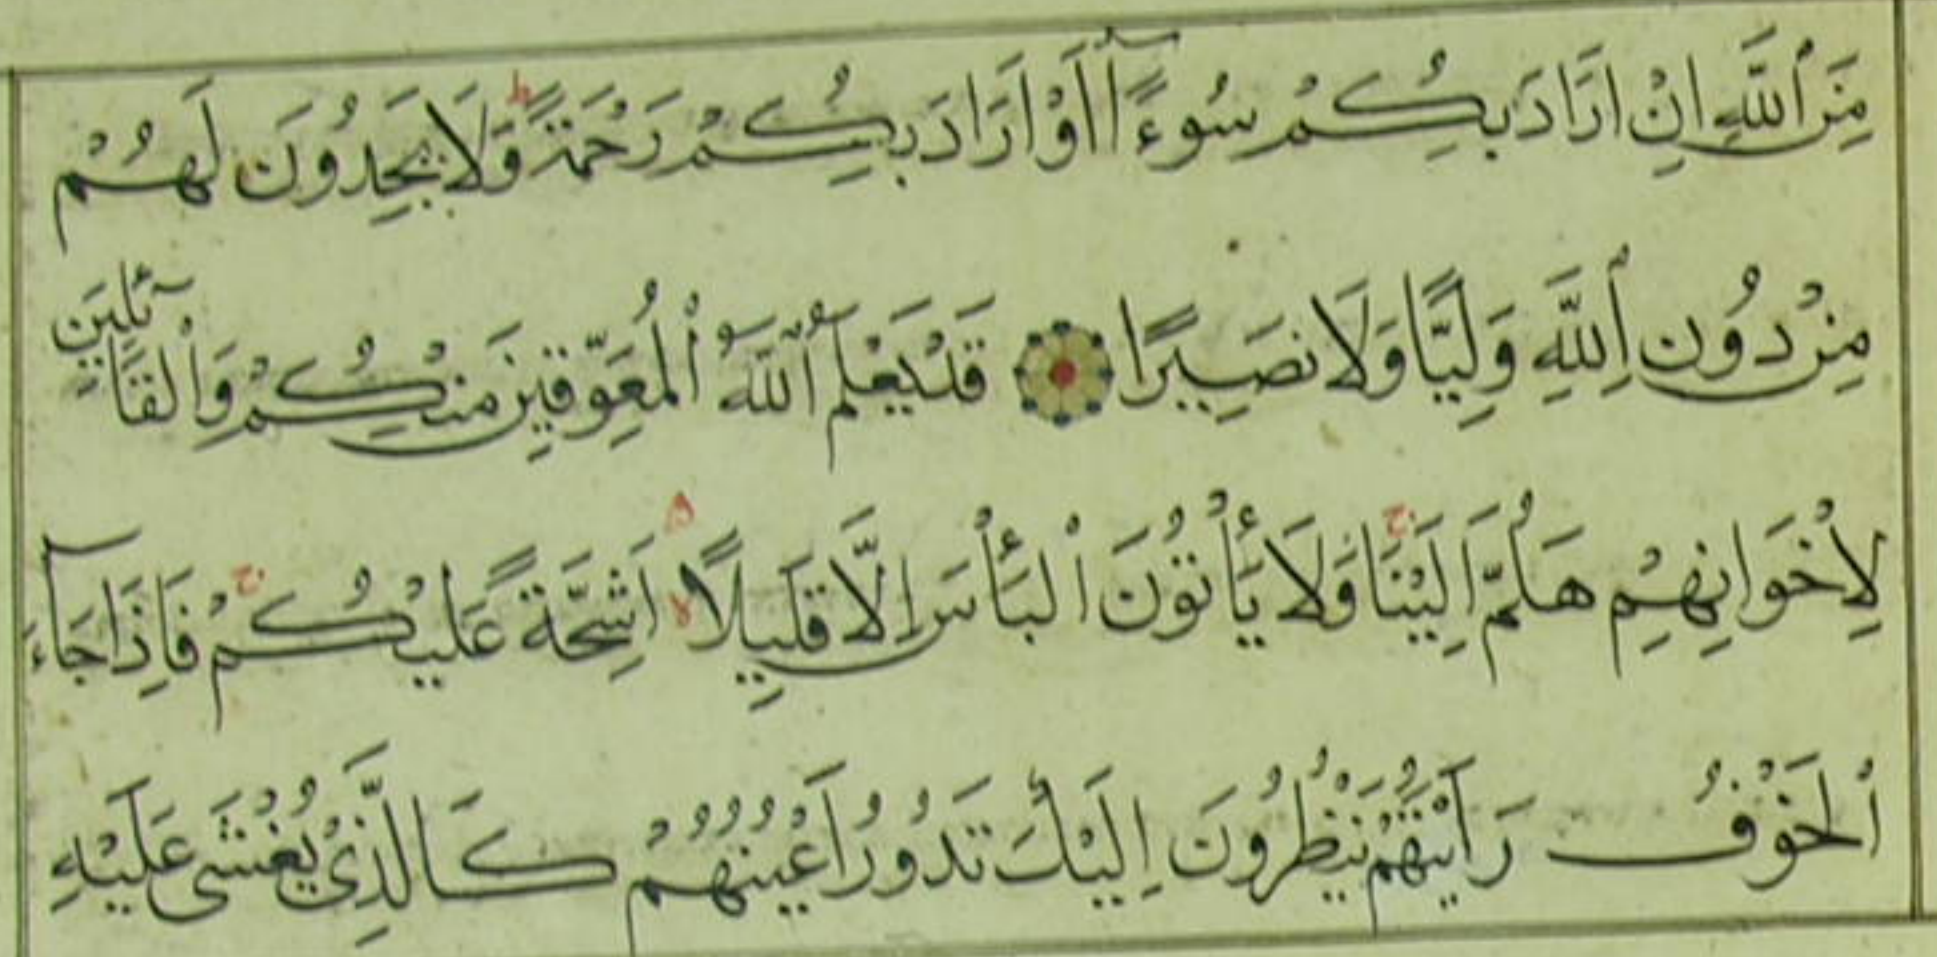 مِنَ ٱللَّهِ اِنْ اَرَادَ بِكُمْ سُوءًا اَوْ اَرَادَ بِكُمْ رَحْمَةً وَلَا يَجِدُونَ لَهُمْ
مِنْ دُونِ ٱللَّهِ وَلِيًّا وَلَا نَصِيرًا قَدْ يَعْلَمُ ٱللَّهُ ٱلْمُعَوِّقِينَ مِنْكُمْ وَٱلْقَآئِلِينَ
لِإِخْوَانِهِمْ هَلُمَّ اِلَيْنَا وَلَا يَأْتُونَ ٱلْبَأْسَ اِلَّا قَلِيلًا اَشِحَّةً عَلَيْكُمْ فَاِذَا جَآءَ
ٱلْخَوْفُ رَاَيْتَهُمْ يَنْظُرُونَ اِلَيْكَ تَدُورُ اَعْيُنُهُمْ كَالَّذِي يُغْشَى عَلَيْهِ